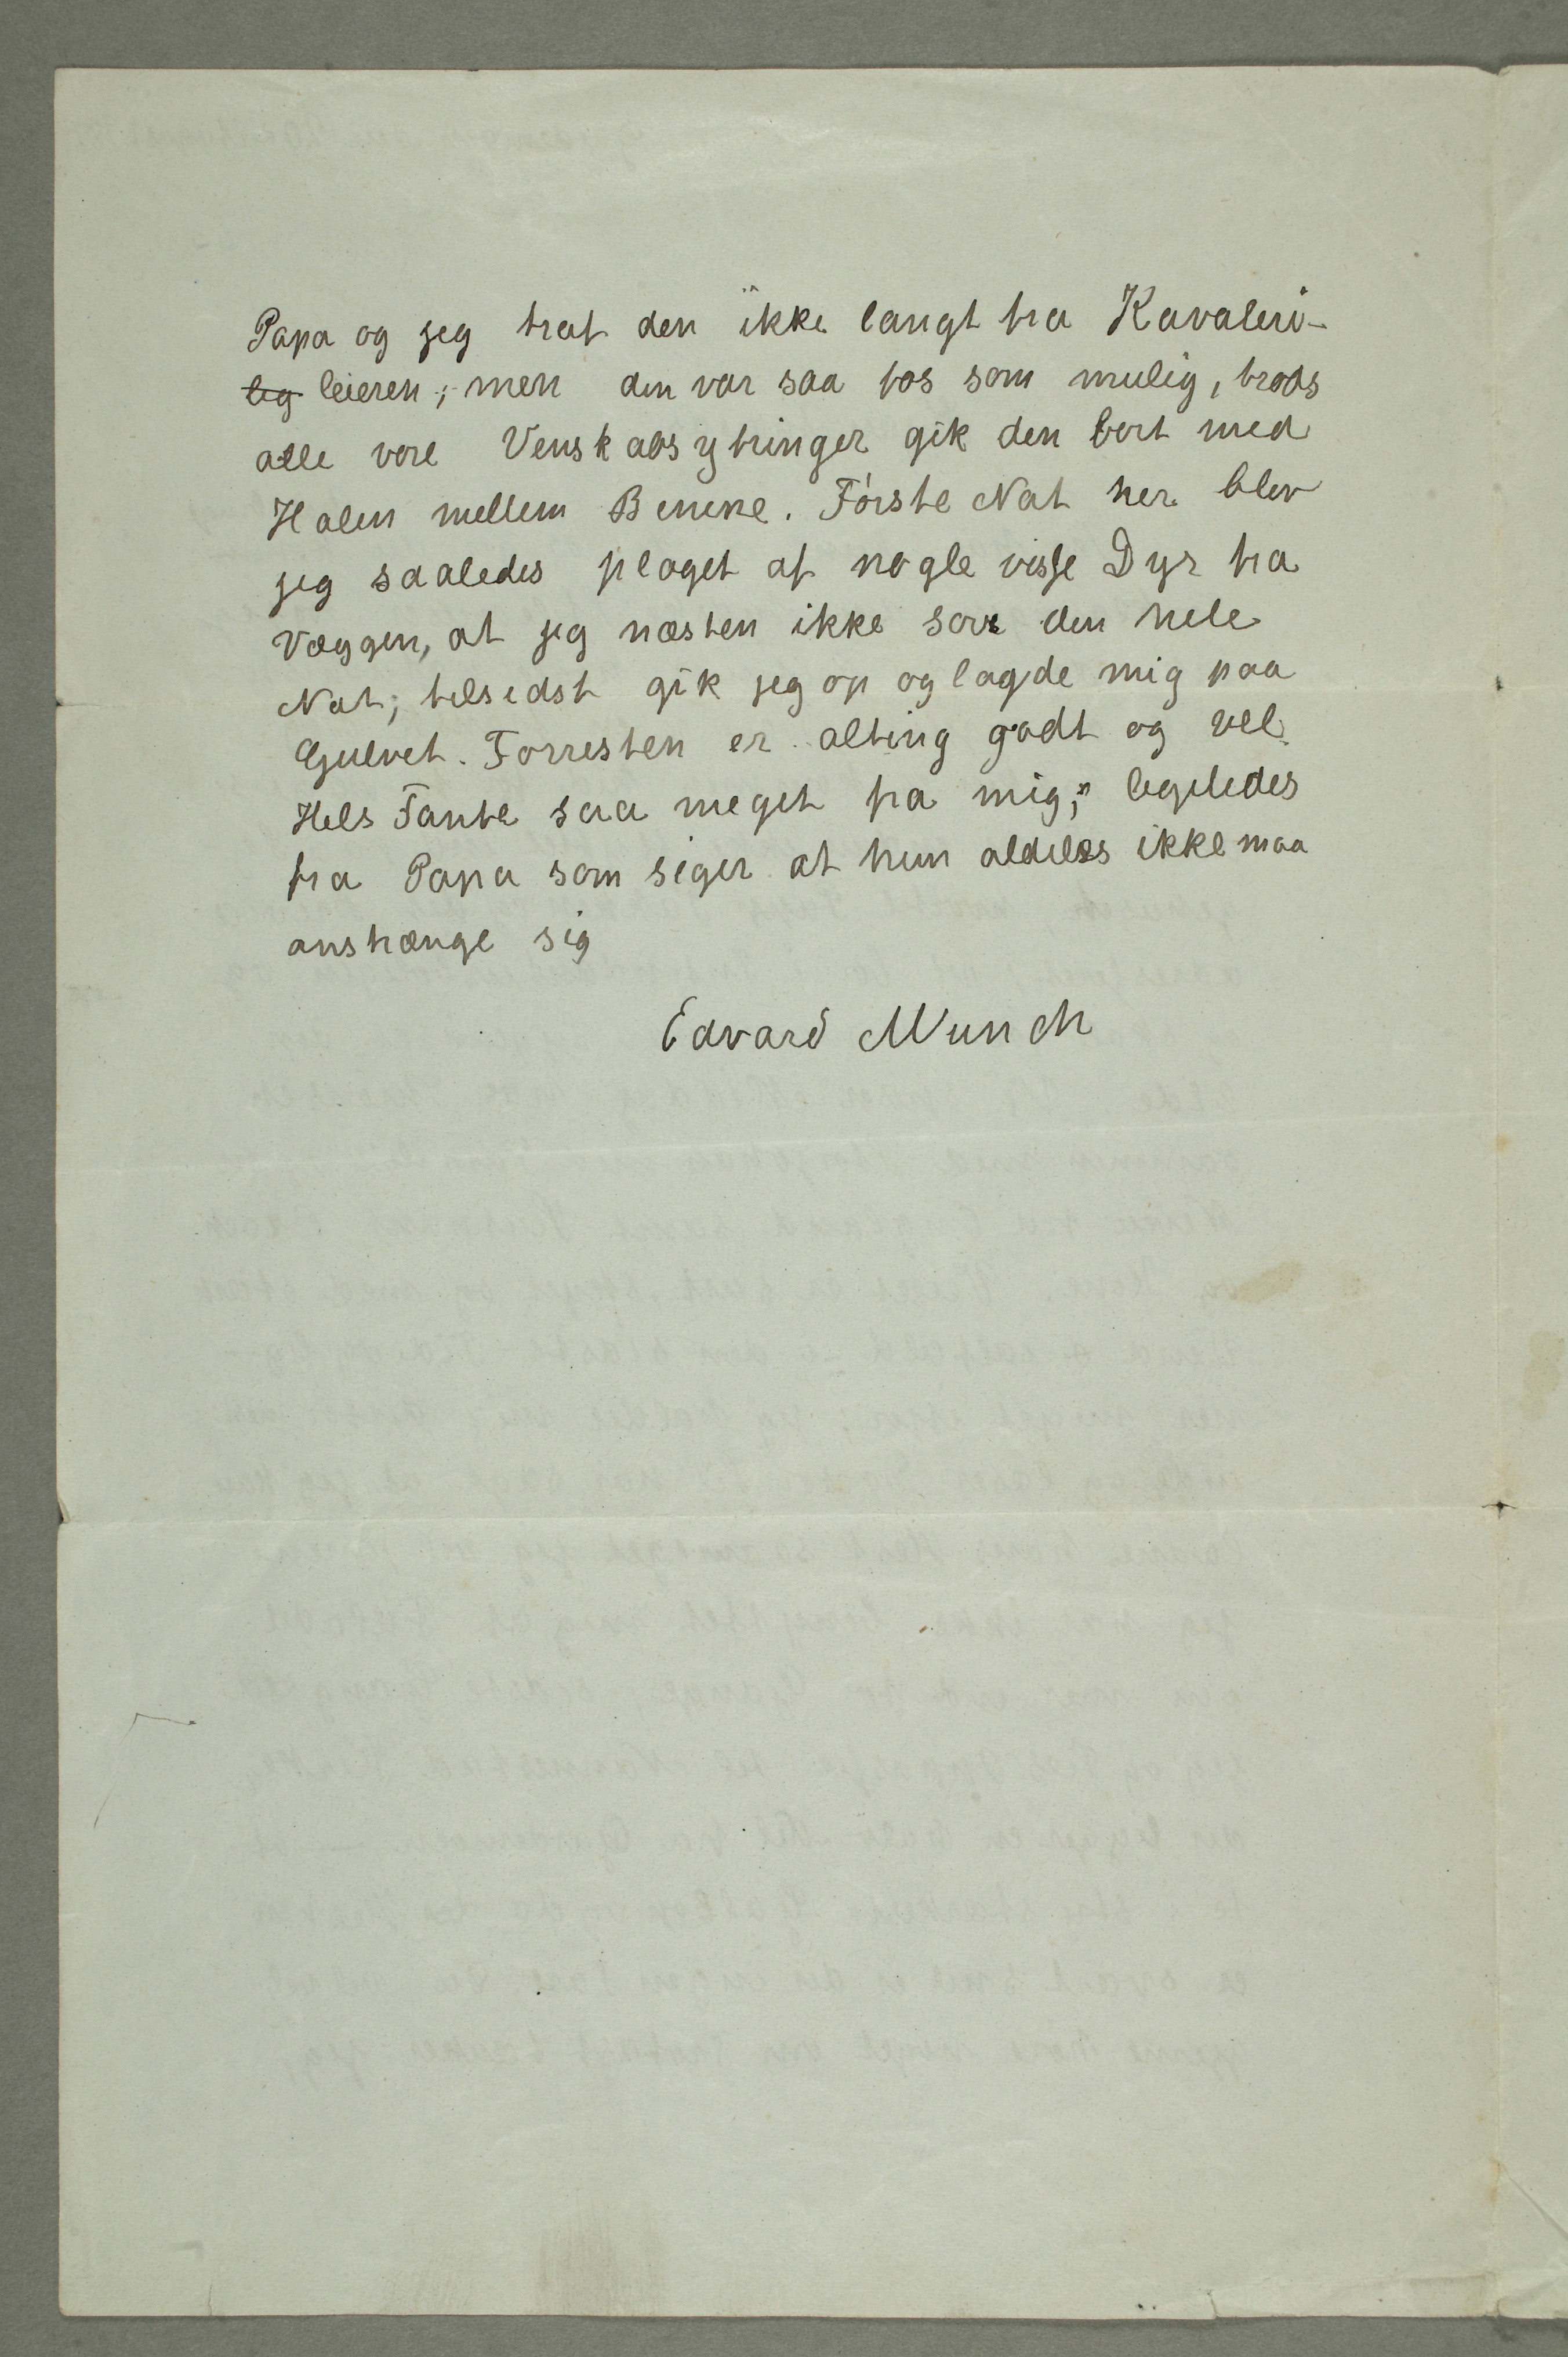 Papa og jeg traf den ikke langt fra Kavaleri-
lig leieren; men den var saa bøs som mulig, trods
alle vore Venskabsytringer gik den bort med
Halen mellem Benene. Første Nat her blev
jeg saaledes plaget af nogle visse Dyr fra
Væggen, at jeg næsten ikke sov den hele
Nat; tilsidst gik jeg op og lagde mig paa
Gulvet. Forresten er alting godt og vel.
Hels Tante saa meget fra mig; ligeledes
fra Papa som siger at hun aldeles ikke maa
anstrænge sig
Edvard Munch